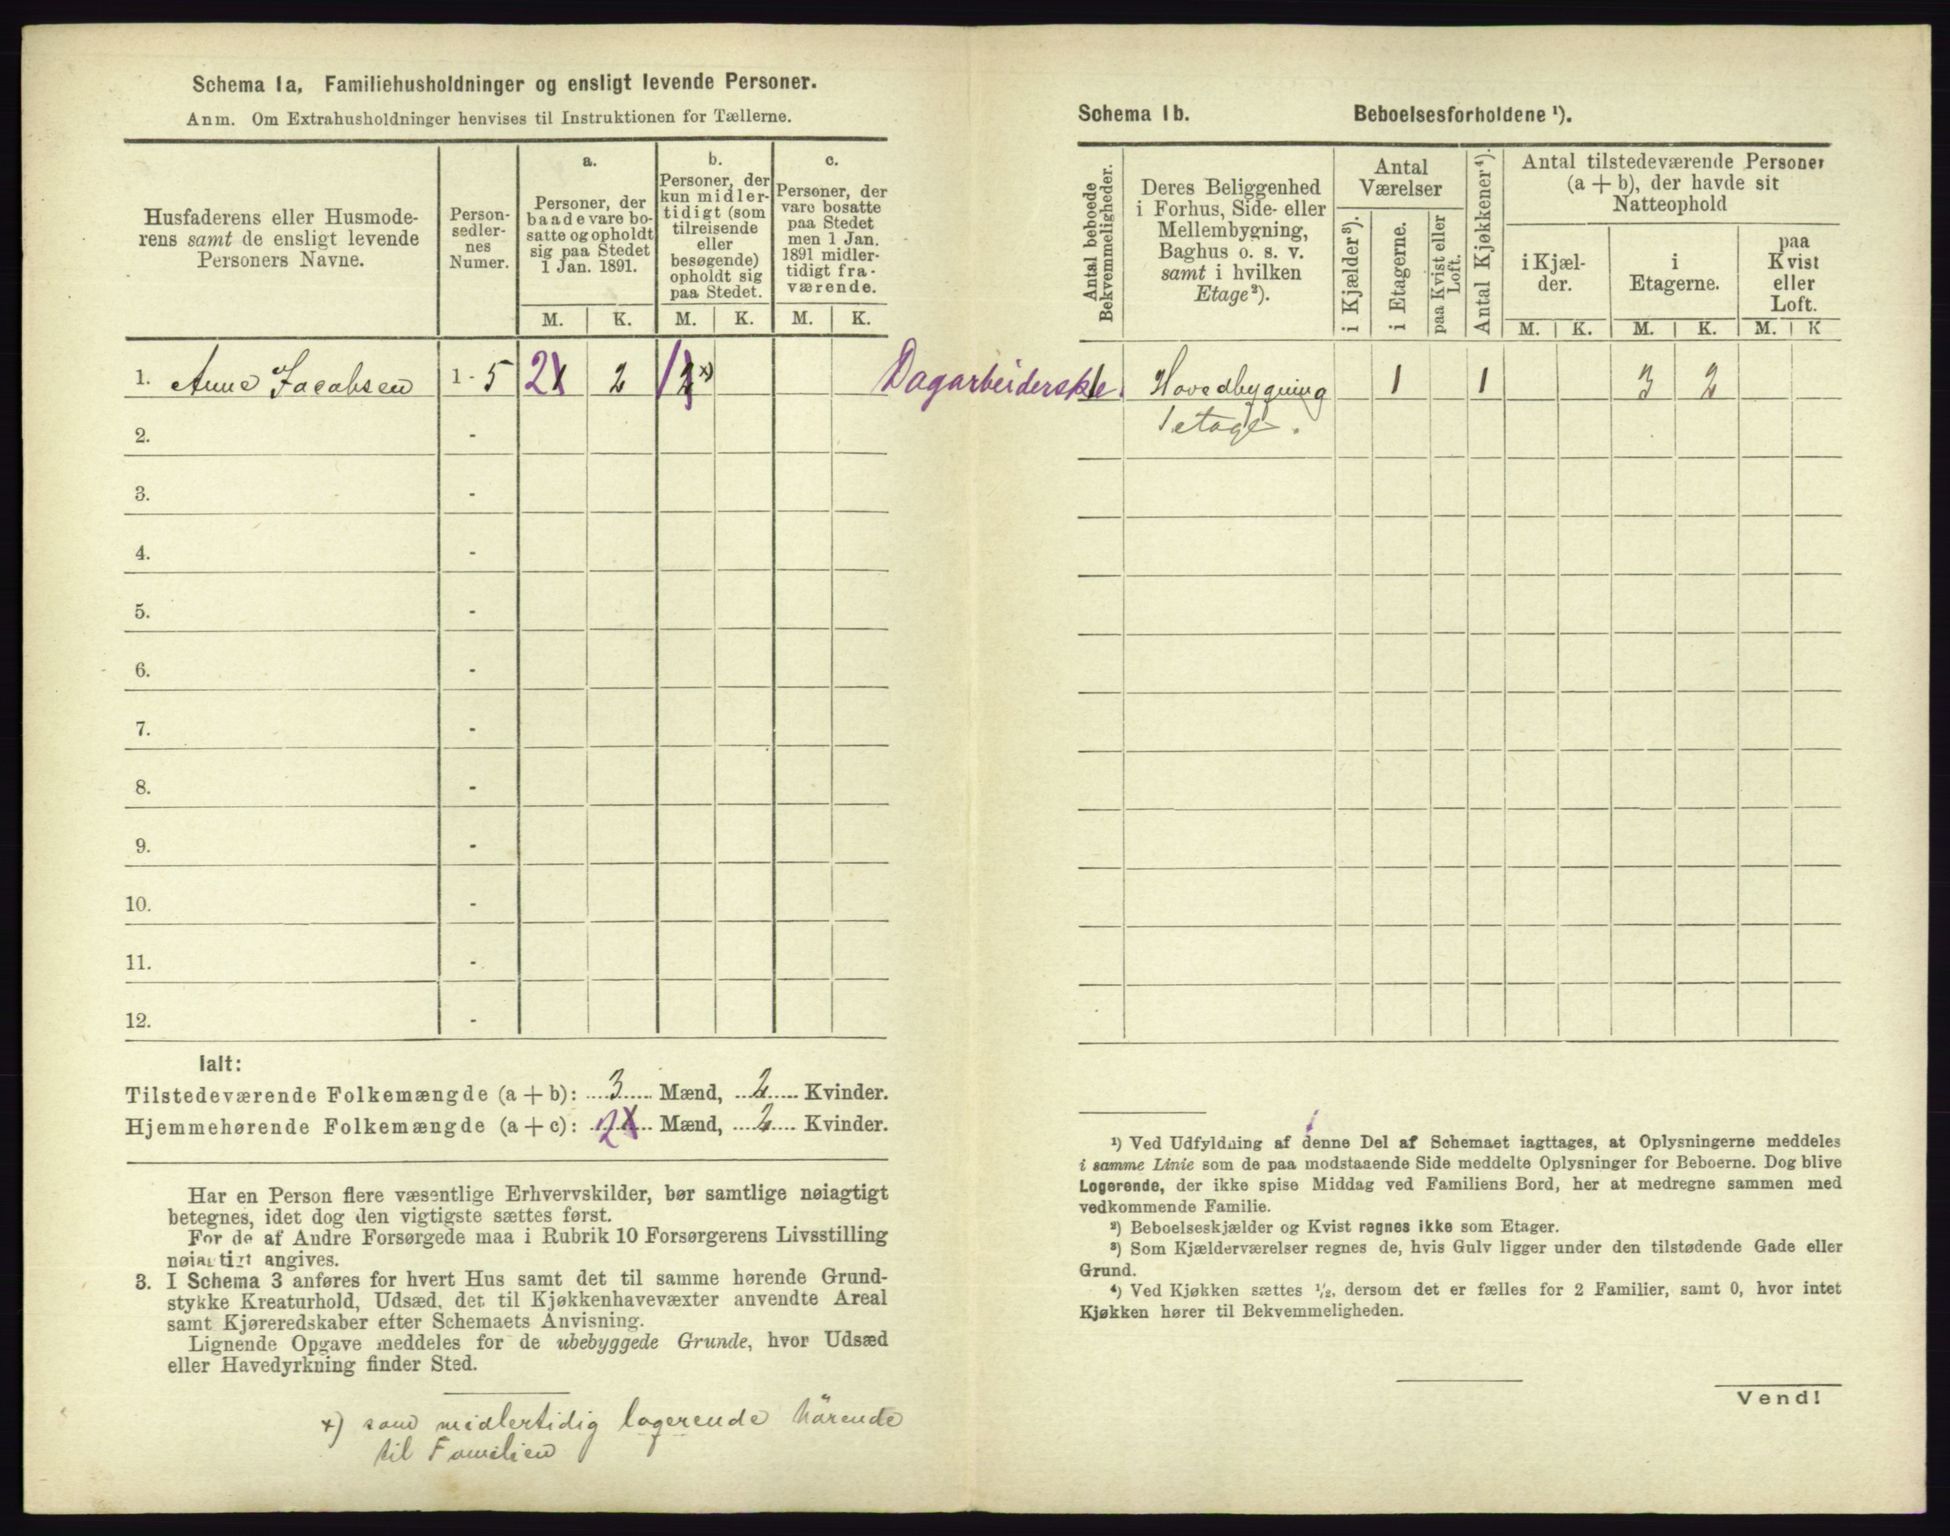 Schema 1a. Familiehusholdninger og ensligt levende Personer.
Anm. Om Extrahusholdninger henvises til Instruktionen for Tællerne.
Husfaderens eller Husmode-
rens samt de ensligt levende
Personers Navne.
Person-
sedler-
nes
Numer.
a.
Personer, der
baade vare bo-
satte og opholdt
sig paa Stedet
1 Jan. 1891.
b.
Personer, der
kun midler-
tidigt (som
tilreisende
eller
besøgende)
opholdt sig
paa Stedet.
c.
Personer, der
vare bosatte
paa Stedet
men 1 Jan.
1891 midler-
tidigt fra-
værende.
M. K. M. K. M. K.
1. Anne Jacobsen 1 - 5 2 1 2 1 2 x)
2. -
3. -
4. -
5. -
6. -
7. -
8. -
9. -
10. -
11. -
12. -
Ialt:
Tilstedeværende Folkemængde (a + b): 3 Mænd, 2 Kvinder.
Hjemmehørende Folkemængde (a + c): 2 1 Mænd, 2 Kvinder.
Har en Person flere væsentlige Erhvervskilder, bør samtlige nøiagtigt
betegnes, idet dog den vigtigste sættes først.
For de af Andre Forsørgede maa i Rubrik 10 Forsørgerens Livsstilling
nøiagtigt angives.
3. I Schema 3 anføres for hvert Hus samt det til samme hørende Grund-
stykke Kreaturhold, Udsæd, det til Kjøkkenhavevæxter anvendte Areal
samt Kjøreredskaber efter Schemaets Anvisning.
Lignende Opgave meddeles for de ubebyggede Grunde, hvor Udsæd
eller Havedyrkning finder Sted.
x) som midlertidig logerende hörende
til Familien
Schema 1b. Beboelsesforholdene ¹).
Antal beboede
Bekvemmeligheder.
Deres Beliggenhed
i Forhus, Side- eller
Mellembygning,
Baghus o. s. v.
samt i hvilken
Etage²).
Antal
Værelser
i Kjælder³).
i Etagerne.
paa Kvist eller
Loft.
Antal Kjøkkener⁴).
Antal tilstedeværende Personer
(a + b), der havde sit
Natteophold
i Kjæl-
der.
i
Etagerne.
paa
Kvist
eller
Loft.
M. K. M. K. M. K
Dagarbeiderske. 1 Hovedbygning 1 1 3 2
1 etage.
¹) Ved Udfyldning af denne Del af Schemaet iagttages, at Oplysningerne meddeles
i samme Linie som de paa modstaaende Side meddelte Oplysninger for Beboerne. Dog blive
Logerende, der ikke spise Middag ved Familiens Bord, her at medregne sammen med
vedkommende Familie.
²) Beboelseskjælder og Kvist regnes ikke som Etager.
³) Som Kjælderværelser regnes de, hvis Gulv ligger under den tilstødende Gade eller
Grund.
⁴) Ved Kjøkken sættes ½, dersom det er fælles for 2 Familier, samt 0, hvor intet
Kjøkken hører til Bekvemmeligheden.
Vend!